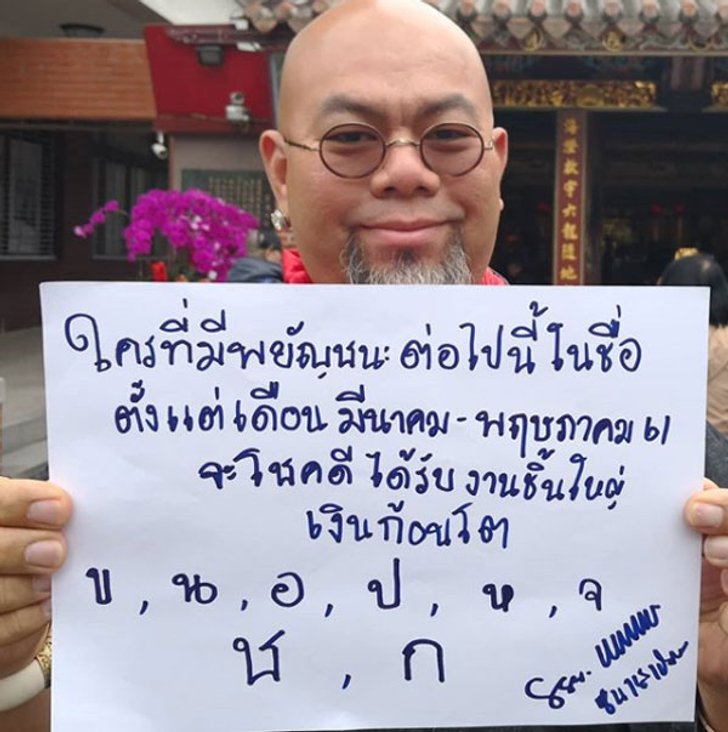 海澄教守六龍道地
ใครที่มีพยัญชนะ ต่อไปนี้ ในชื่อ
ตั้งแต่ เดือน มีนาคม - พฤษภาคม 61
จะโชคดี ได้รับ งานชิ้นใหญ่
เงินก้อนโต
ข , น , อ , ป , ห , จ
ช , ก